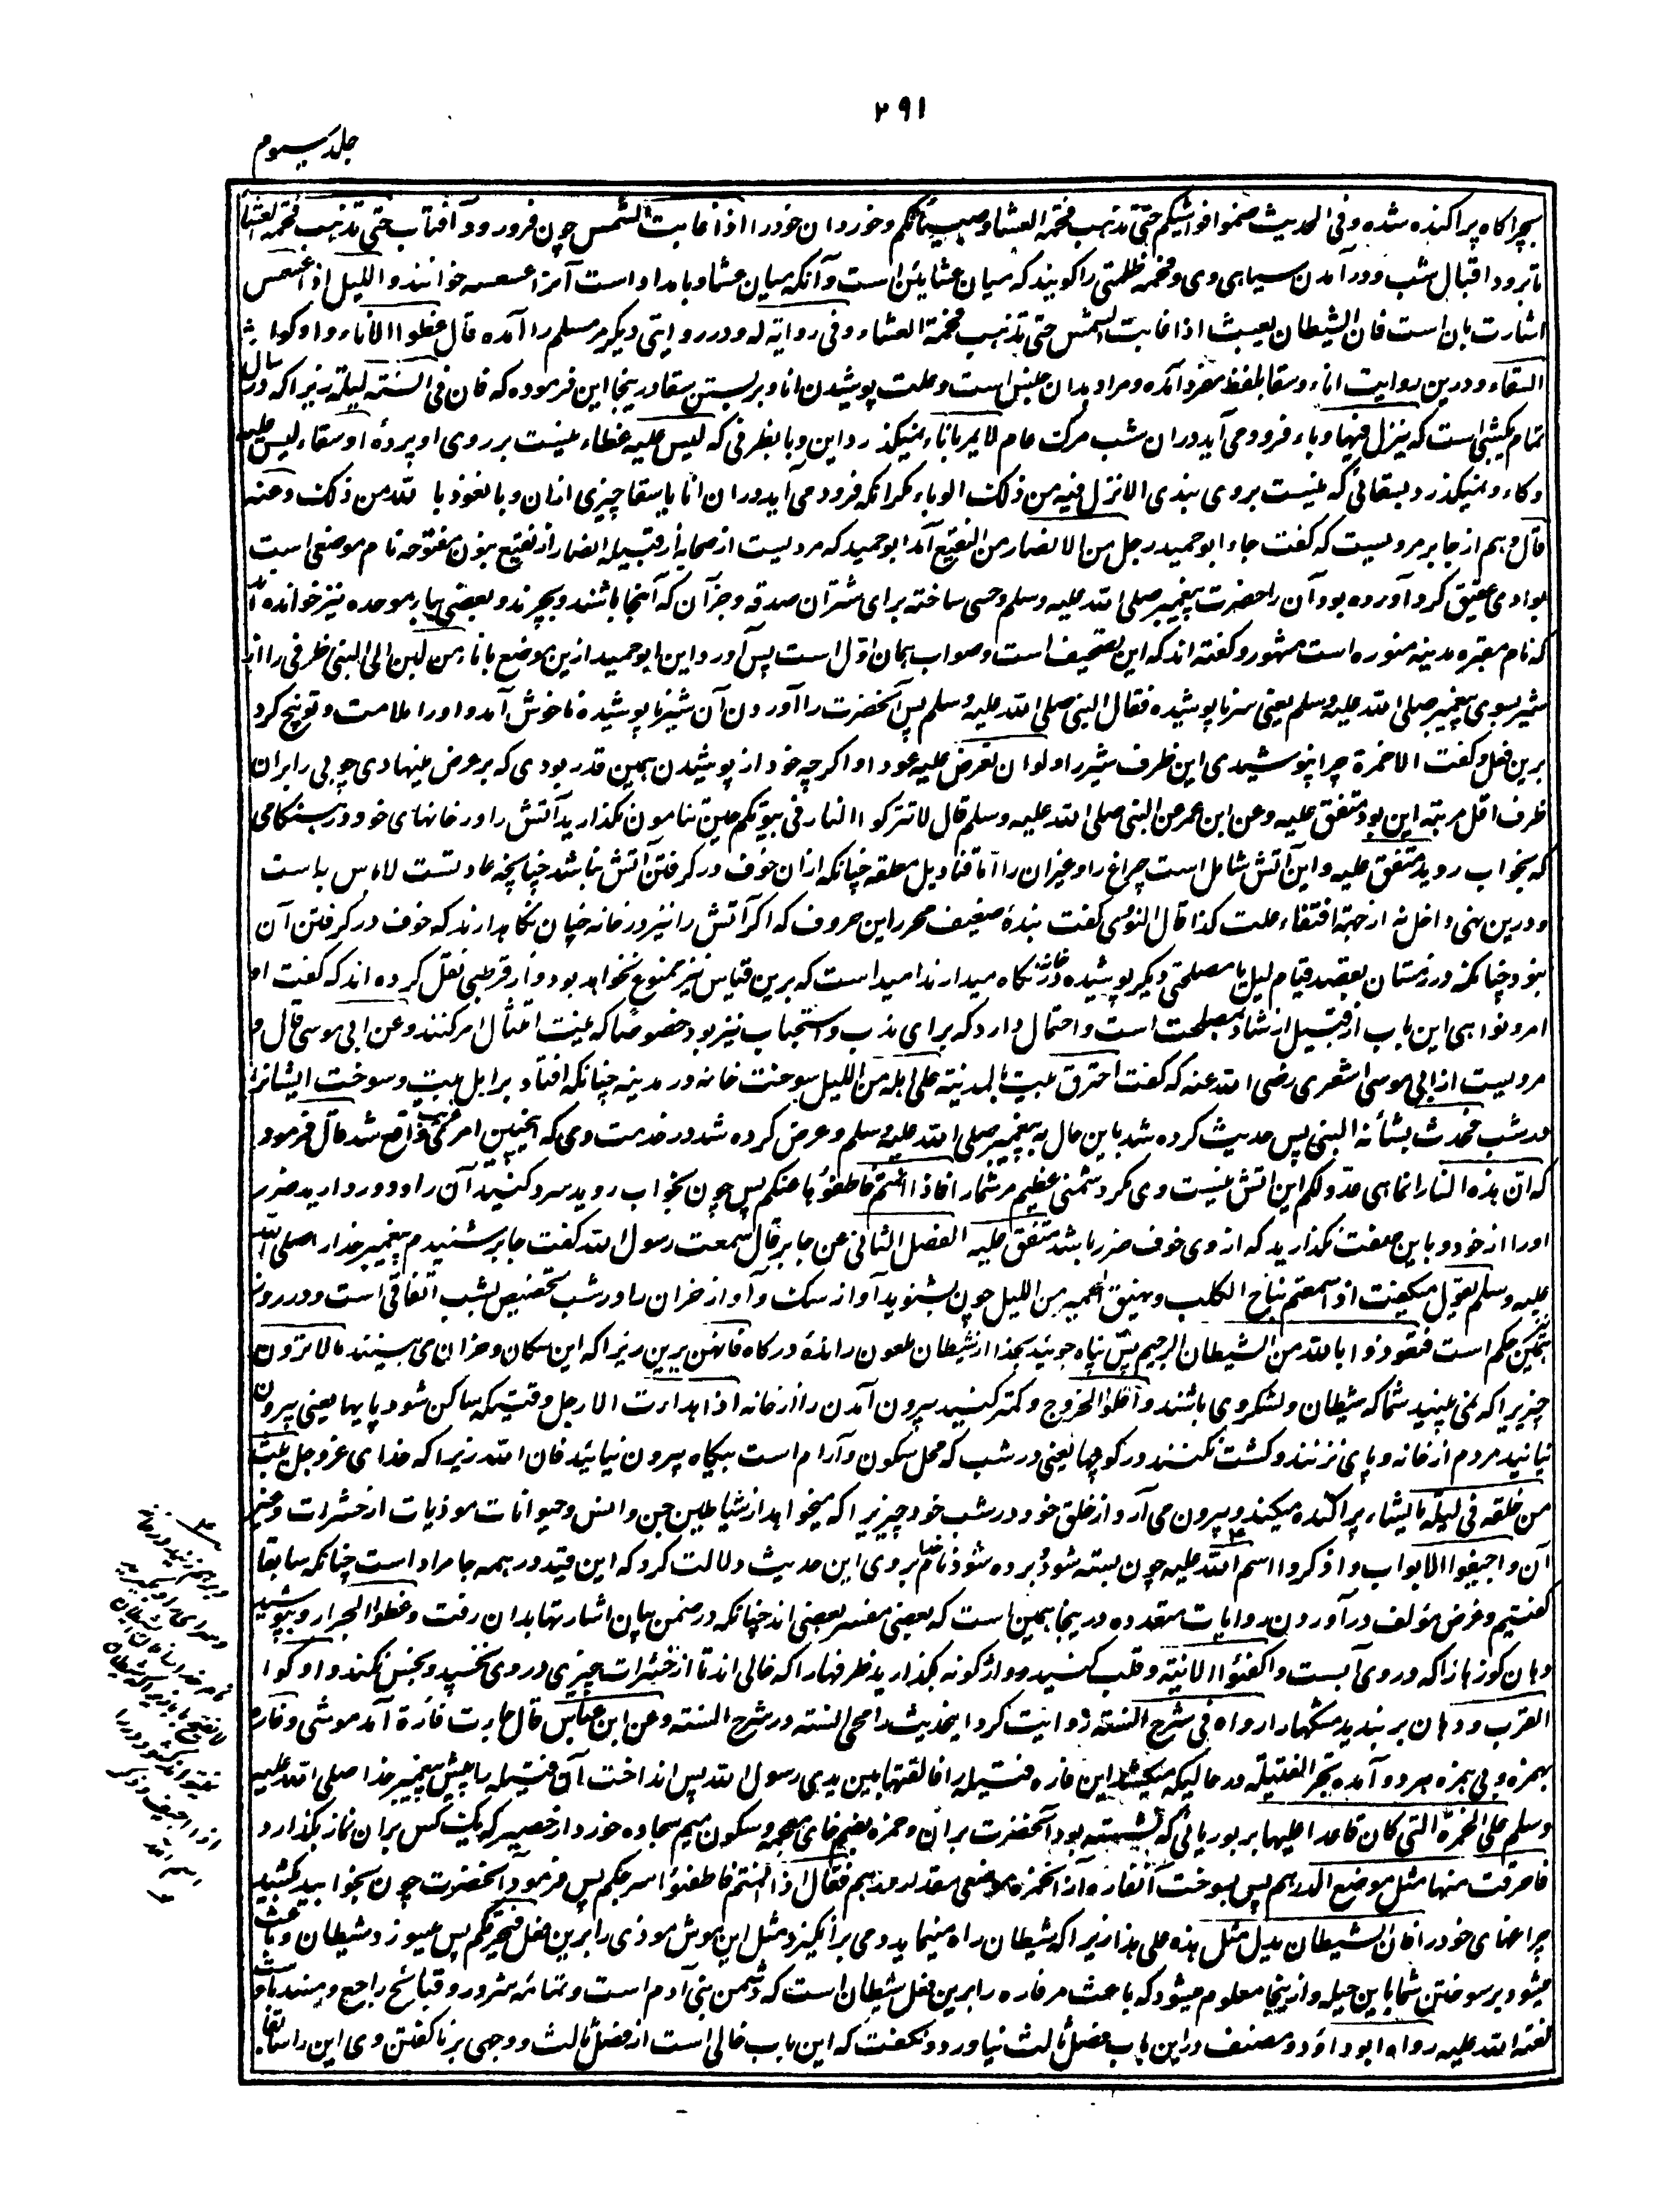 ۲۹۱
جلد سیوم
بچراکاه پراکنده شده وفی الحدیث ضموا فواشیکم حتی تذهب فحمة العشاء وصبیانکم وخوردان خود را اذا غابت الشمس چون فرو رود آفتاب حتی تذهب فحمة العشاء
تا برود اقبال شب ودرآمدن سیاهی وی وفحمه ظلمتی را کویند که میان عشایین است وآنکه میان عشا وبامداد است آنرا عسعسه خوانند واللیل اذا عسعس
اشارت بان است فان الشیطان یبعث اذا غابت الشمس حتی تذهب فحمة العشاء وفی روایة له ودر روایتی دیکر مر مسلم را آمده قال غطوا الاناء واوکوا
السقاء ودرین روایت اناء وسقا بلفظ مفرد آمده ومراد بدان جنس است وعلت پوشیدن انا وبربستن سقا درینجا این فرموده که فان فی السنة لیلة زیرا که در سال
تمام یکشبی است که ینزل فیها وباء فرود می آید دران شب مرک عام لا یمر باناء نمیکذرد این وبا بظرفی که لیس علیه غطاء نیست بر روی او پردهٔ او سقاء لیس علیه
وکاء ونمیکذرد بسقائی که نیست بروی بندی الا نزل فیه من ذلک الوباء مکر آنکه فرود می آید دران انا یا سقا چیزی ازان وبا نعوذ بالله من ذلک وعنه
قال وهم از جابر مرویست که کفت جاء ابو حمید رجل من الانصار من النقیع آمد ابو حمید که مردیست از صحابه از قبیله انصار از نقیع بنون مفتوحه نام موضعی است
بوادی عقیق کرد آورده بود آن را حضرت پیغمبر صلی الله علیه وسلم وحمی ساخته برای شتران صدقه وجز آن که آنجا باشند وبچرند وبعضی بباء موحده نیز خوانده اند
که نام مقبره مدینه منوره است مشهور وکفته اند که این تصحیف است وصواب همان اول است پس آورد این ابو حمید ازین موضع باناء من لبن الی النبی ظرفی را از
شیر بسوی پیغمبر صلی الله علیه وسلم یعنی سر ناپوشیده فقال النبی صلی الله علیه وسلم پس آنحضرت را آوردن آن شیر ناپوشیده ناخوش آمد واو را ملامت وتوبیخ کرد
برین فعل وکفت الا خمرته چرا نپوشیدی این ظرف شیر را ولو ان تعرض علیه عودا واکرچه خود از پوشیدن همین قدر بودی که بر عرض مینهادی چوبی را بران
ظرف اقل مرتبه این بود متفق علیه وعن ابن عمر عن النبی صلی الله علیه وسلم قال لا تترکوا النار فی بیوتکم حین تنامون نکذارید آتش را در خانهای خود در هنکامی
که بخواب روید متفق علیه واین آتش شامل است چراغ را وغیر آن را اما قنادیل معلقه چنانکه ازان خوف در کرفتن آتش نباشد چنانچه عادتست لاباس به است
ودرین نهی داخل نه از جهة انتفاء علت کذا قال النووی کفت بندهٔ ضعیف محرر این حروف که اکر آتش را نیز در خانه چنان نکاهدارند که خوف در کرفتن آن
نبود چنانکه در زمستان بقصد قیام لیل یا مصلحتی دیکر پوشیده در خانه نکاه میدارند امید است که برین قیاس نیز ممنوع نخواهد بود واز قرطبی نقل کرده اند که کفت
امر ونواهی این باب از قبیل ارشاد بمصلحت است واحتمال دارد که برای ندب واستحباب نیز بود خصوصا که نیت امتثال امر کنند وعن ابی موسی قال
مرویست از ابی موسی اشعری رضی الله عنه که کفت احترق بیت بالمدینة علی اهله من اللیل سوخت خانه در مدینه چنانکه افتاد بر اهل بیت وسوخت ایشانرا
در شب فحدث بشأنه النبی پس حدیث کرده شد باین حال به پیغمبر صلی الله علیه وسلم وعرض کرده شد در خدمت وی که اینچنین امر غریب واقع شد قال فرمود
که ان هذه النار انما هی عدو لکم این آتش نیست وی مکر دشمنی عظیم مر شما را فاذا نمتم فاطفؤها عنکم پس چون بخواب روید سرد کنید آن را ودور دارید ضرر
او را از خود وباین صفت نکذارید که از وی خوف ضرر باشد متفق علیه الفصل الثانی عن جابر قال سمعت رسول الله کفت جابر شنیدم پیغمبر خدا را صلی الله
علیه وسلم یقول میکفت اذا سمعتم نباح الکلب ونهیق الحمیر من اللیل چون بشنوید آواز سک وآواز خران را در شب تخصیص بشب اتفاقی است ودر روز
نیز همین حکم است فتعوذوا بالله من الشیطان الرجیم پس پناه جوئید بخدا از شیطان ملعون راندهٔ درکاه فانهن یرین زیرا که این سکان وخران می بینند ما لا ترون
چیزیرا که نمی بینید شما که شیطان ولشکر وی باشند واقلوا الخروج وکمتر کنید بیرون آمدن را از خانه اذا هدأت الارجل وقتیکه ساکن شود پایها یعنی بیرون
نیایند مردم از خانه وپای نزنند وکشت نکنند در کوچها یعنی در شب که محل سکون وآرام است بیکاه بیرون نیائید فان الله زیرا که خدای عز وجل یبث
من خلقه فی لیلته ما یشاء پراکنده میکند وبیرون می آرد از خلق خود در شب خود چیزیرا که میخواهد از شیاطین جن وانس وحیوانات موذیات از حشرات وغیر
آن واجیفوا الابواب واذکروا اسم الله علیه چون بسته شود وبرده شود نام خدا بروی این حدیث دلالت کرد که این قید در همه جا مراد است چنانکه سابقا
کفتیم وغرض مؤلف در آوردن روایات متعدده درینجا همین است که بعضی مفسر بعضی اند چنانکه در ضمن بیان اشارتها بدان رفت وغطوا الجرار وبپوشید
دهان کوزها را که در وی آبست واکفئوا الآنیة وقلب کنید وواژکونه بکذارید ظرفها را که خالی اند تا از حشرات چیزی در وی نخسپد ونجس نکند واوکوا
القرب ودهان بر بندید مشکها را رواه فی شرح السنة روایت کرد اینحدیث را محی السنه در شرح السنه وعن ابن عباس قال جاءت فأرة آمد موشی وفاره
بهمزه وبی همزه هر دو آمده تجر الفتیلة در حالیکه میکشد این فاره فتیله را فالقتها بین یدی رسول الله پس انداخت آن فتیله را پیش پیغمبر خدا صلی الله علیه
وسلم علی الخمرة التی کان قاعدا علیها بر بوریائی که نشسته بود آنحضرت بران وخمره بضم خای معجمه وسکون میم سجاده خورد از حصیر که یک کس بران نماز بکذارد
فاحرقت منها مثل موضع الدرهم پس بسوخت آنفاره از آنخمره موضعی مقدار درهم فقال اذا نمتم فاطفئوا سرجکم پس فرمود آنحضرت چون بخوابید بکشید
چراغهای خود را فان الشیطان یدل مثل هذه علی هذا زیرا که شیطان راه مینماید ومی برانکیزد مثل این موش موذی را برین فعل فیحرقکم پس میسوزد شیطان وباعث
میشود بر سوختن شما باین حیله وازینجا معلوم میشود که باعث مر فاره را برین فعل شیطان است که دشمن بنی آدم است وتمامه شرور وقبائح راجع ومستند باوست
لعنة الله علیه رواه ابو داؤد ومصنف در این باب فصل ثالث نیاورد ونکفت که این باب خالی است از فصل ثالث ووجهی بر ناکفتن وی این را سابقا